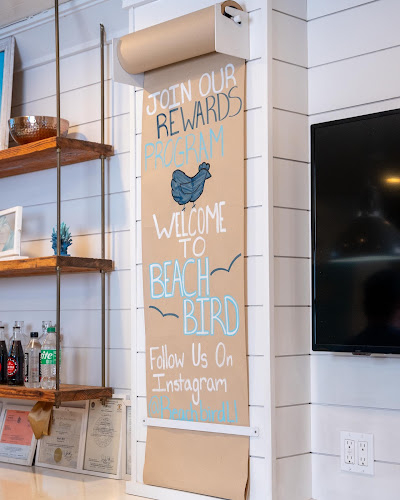 JOIN OUR
REWARDS
PROGRAM
WELCOME
TO
BEACH
BIRD
Follow Us On
Instagram